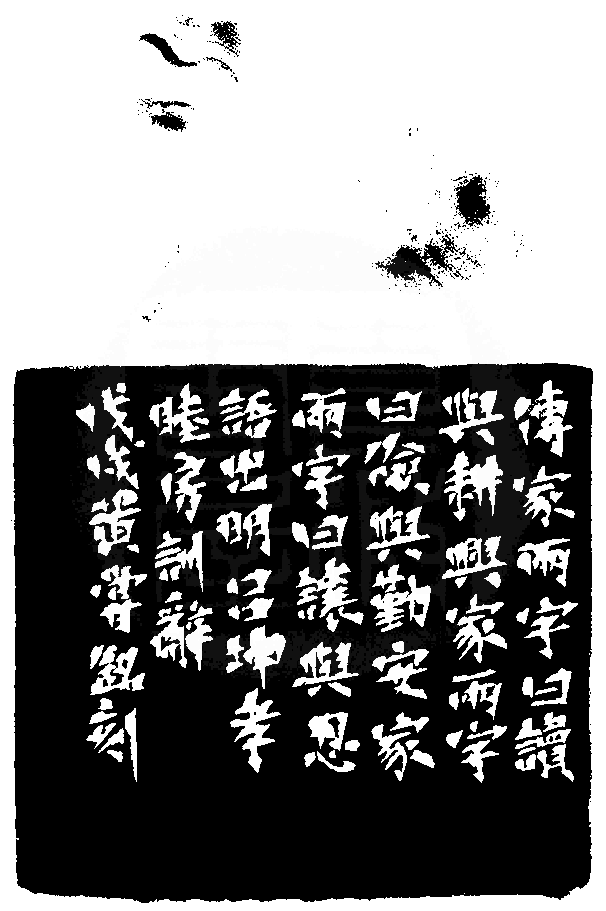 傳家兩字曰讀
與耕興家兩字
曰儉與勤安家
兩字曰讓與忍
語出明呂坤孝
睦房訓辭
戊戌黃嘗銘刻